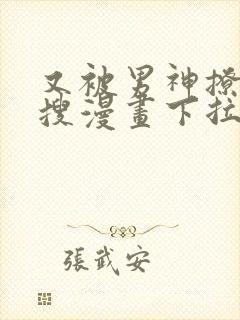 又被男神撩
搜漫畫下拉
張武安